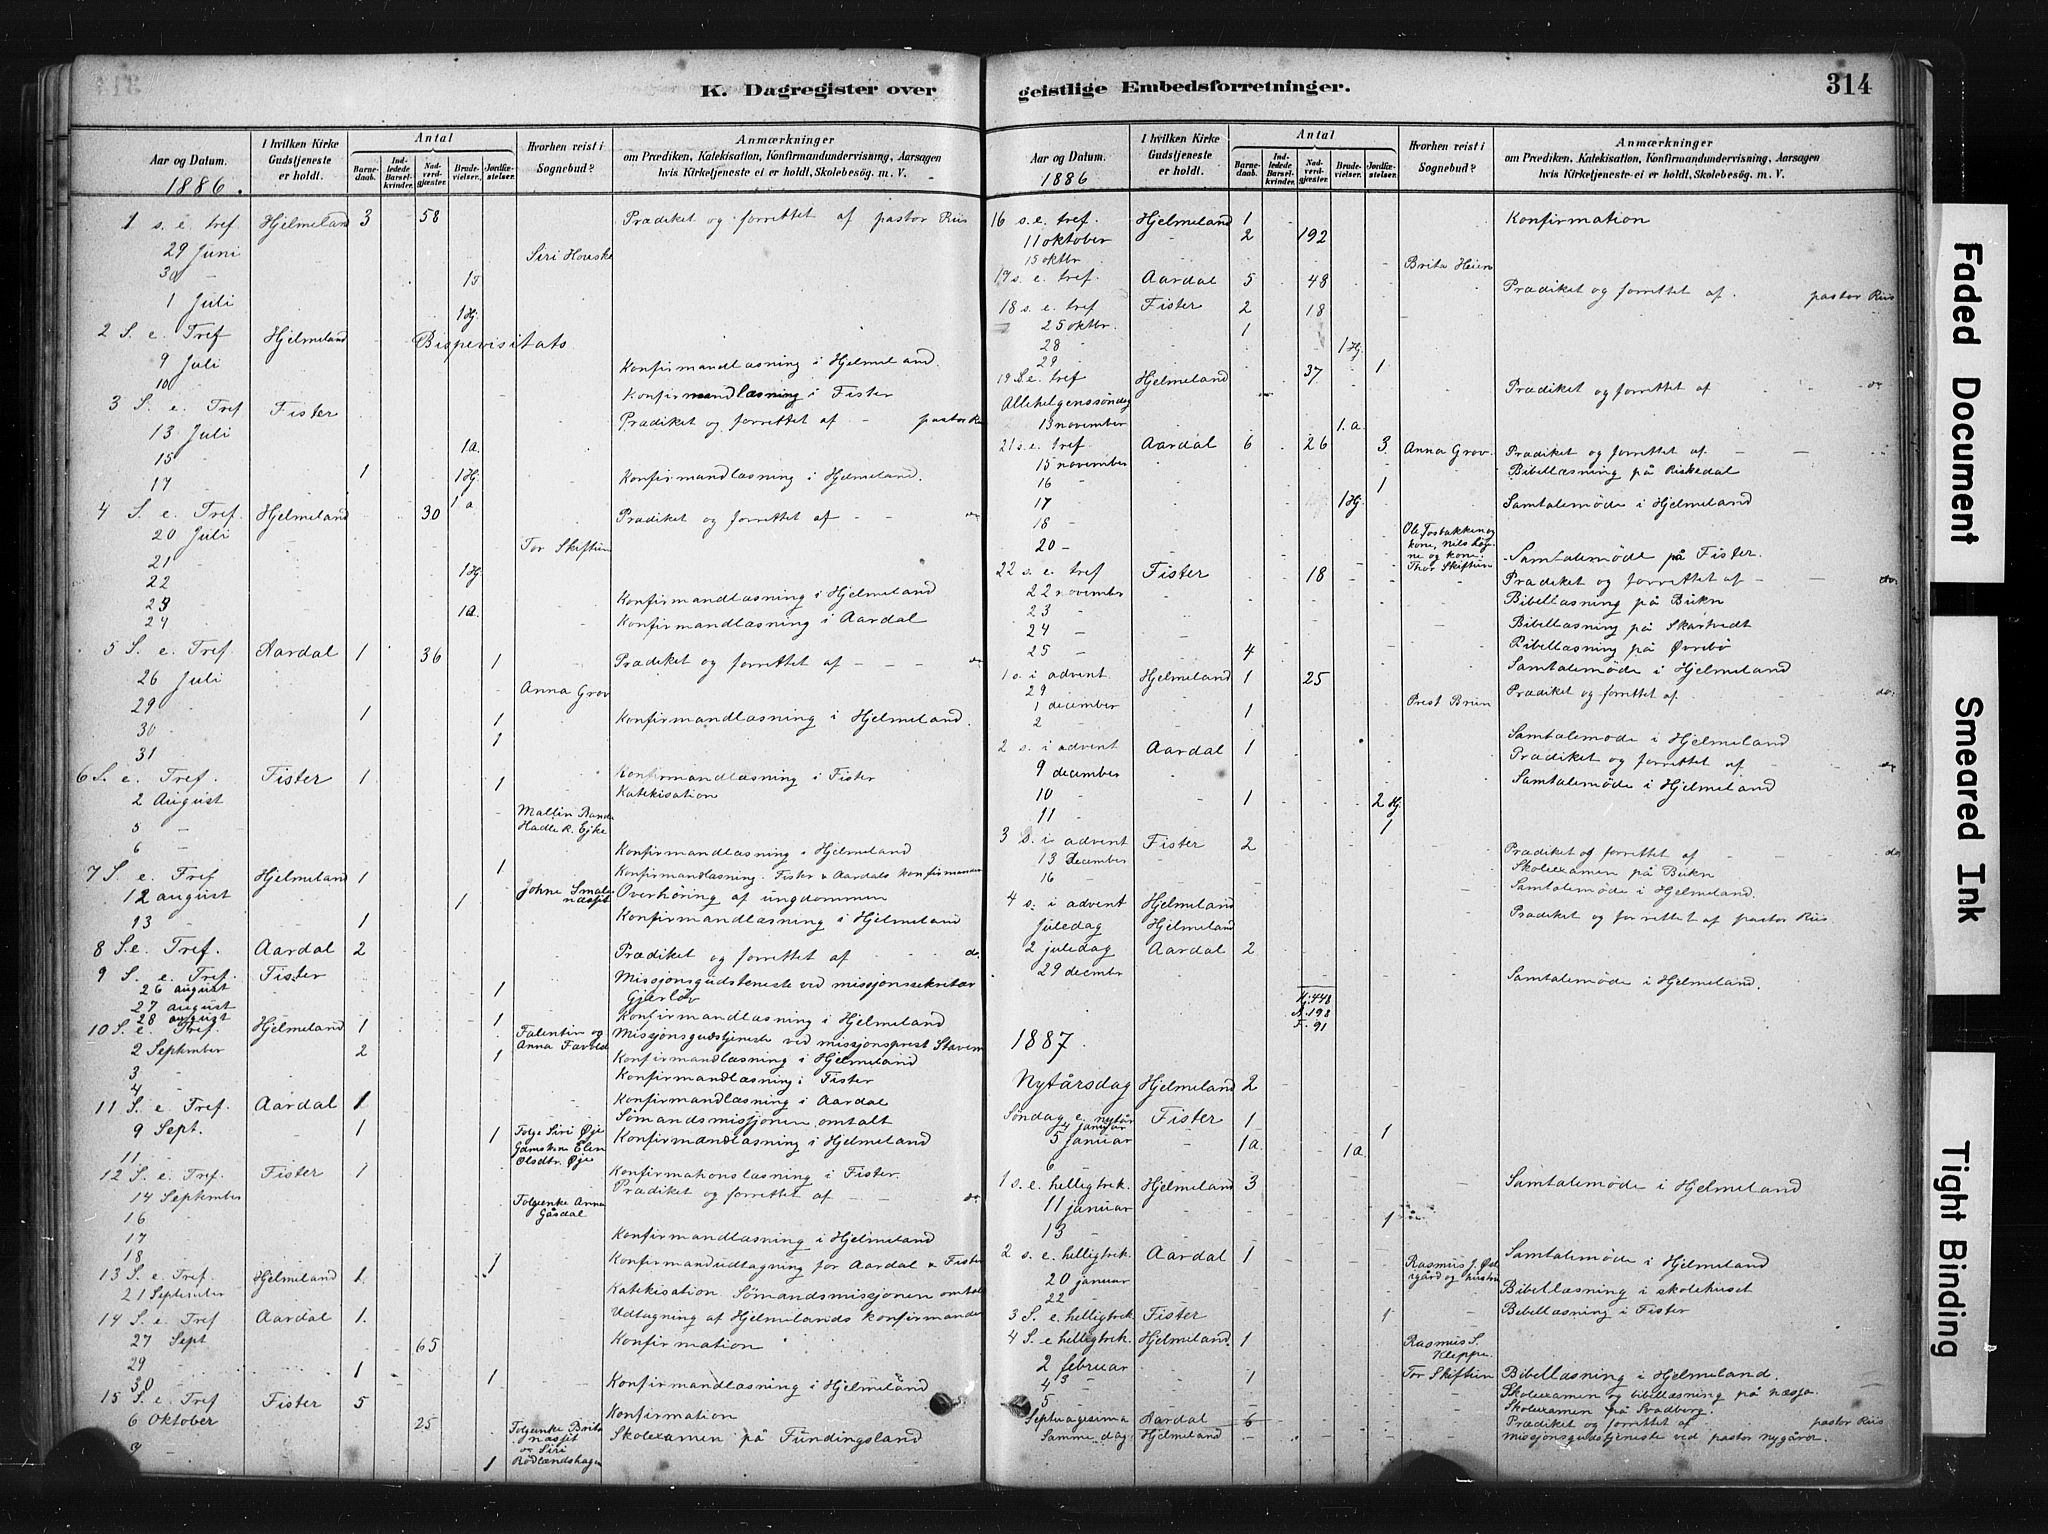 K. Dagregister over
Aar og Datum.
1886.
I hvilken Kirke Gudstjeneste er holdt.
Antal
Barnedaab.
Indledede Barselkvinder.
Nadverdgjester.
Brudevielser.
Jordfæstelser.
Hvorhen reist i Sognebud?
Anmærkninger
om Prædiken, Katekisation, Konfirmandundervisning, Aarsagen
hvis Kirketjeneste ei er holdt, Skolebesøg. m. V.
1 s. e. tref. Hjelmeland 3 58 Prædiket og forrettet af pastor Riis
29 Juni Siri Houske
30 -
1 Juli 1 Hj.
2 S. e. Tref Hjelmeland Bispevisitats
9 Juli Konfirmandlæsning i Hjelmeland.
10 Konfirmandlæsning i Fister
3 S. e. Tref Fister Prædiket og forrettet af - pastor Riis
13 Juli
15 1 a.
17 1 1 Hj. Konfirmandlæsning i Hjelmeland.
4 S. e. Tref. Hjelmeland 30 1 a Prædiket og forrettet af - - do
20 Juli Tor Skiftun
21
22 1 Hj.
23 Konfirmandlæsning i Hjelmeland
24 1 a. Konfirmandlæsning i Aardal
5 S. e. Tref. Aardal 1 36 1 Prædiket og forrettet af - - - do
26 Juli Anna Grov
29
30 1 1 Konfirmandlæsning i Hjelmeland.
31 1
6 S. e. Tref. Fister 1 1 Konfirmandlæsning i Fister
2 August Katekisation
5 - Mallin
6 - Hadle R. Ejke
Konfirmandlæsning i Hjelmeland
7 S. e. Tref Hjelmeland 1 1 Konfirmandlæsning. Fister & Aardals konfirmander
12 august 1 Johne Smalenasset Overhöring af ungdommen
13 1 Konfirmandlæsning i Hjelmeland
8 S.e. Tref. Aardal 2 Prædiket og forrettet af - - - do.
9 S. e. Tref. Fister Missjonsgudsteneste ved missjonssekretær
26 august 1 Gjerlöv
27 august
28 august 1 Konfirmandlæsning i Hjelmeland
10 S. e. Tref. Hjelmeland 1 Falentin og Missjonsgudstjeneste ved missjonsprest Stavem
2 September 2 1 Anna Konfirmandlæsning i Hjelmeland
3 Konfirmandlæsning i Fister
4 Konfirmandlæsning i Aardal
11 S. e. Tref. Aardal 1 Sømandsmissjonen omtalt
9 Sept. 1 1 Følge Siri Øje Konfirmandlæsning i Hjelmeland
11 Elen Olsdtr. Øje
12 S. e. Tref. Fister 1 Konfirmationslæsning i Fister.
14 September Prædiket og forrettet af - - do
16 Følgenke Anna Gåsdal
17 Konfirmandlæsning i Hjelmeland
18 1 Konfirmandudtagning for Aardal & Fister
13 S. e. Tref. Hjelmeland 1.
21 September Katekisation Sømandsmissjonen omtalt
14 S. e. Tref. Aardal 1. Udtagning af Hjelmelands konfirmander
27 Sept 65 Konfirmation
29 1 1
30 Konfirmandlæsning i Hjelmeland
15 S. e. Tref Fister 5
6 Oktober 25 Følgenke Brita nasset Konfirmation
9 - 1 og Siri Rödlandshagen Skolexamen på Fundingsland
geistlige Embedsforretninger.
314
Aar og Datum.
1886
I hvilken Kirke Gudstjeneste er holdt.
Antal
Barnedaab.
Indledede Barselkvinder.
Nadverdgjester.
Brudevielser.
Jordfæstelser.
Hvorhen reist i Sognebud?
Anmærkninger
om Prædiken, Katekisation, Konfirmandundervisning, Aarsagen
hvis Kirketjeneste ei er holdt, Skolebesøg. m. V.
16 s. e. tref. Hjelmeland 1 Konfirmation
11 oktober 2 192
15 oktbr Brita Heien
17 s. e. tref. Aardal 5 48 Prædiket og forrettet af. pastor Riis
18 s. e. tref Fister 2 18
25 oktbr. 1
28 1 Hj.
29 37 1
19 S. e. tref Hjelmeland Prædiket og forrettet af - - do
Allehelgenssöndag
13 november 1. a.
21 s. e. tref. Aardal 6 26 3 Anna Grov. Prædiket og forrettet af. - - do
15 november Bibellæsning på Riskedal
16 1
17 1 Hj. Samtalemøde i Hjelmeland
18 Ole Fosbakken og
20 - kone, Nils Løgne og kone. Samtalemøde på Fister.
22 s. e. tref Fister 18 Thor Skiftun Prædiket og forrettet af - - do.
22 november Bibellæsning på Bukn
23 Bibellæsning på Skartvedt
24 Bibellæsning på Øvrebö
25 4 Samtalemøde i Hjelmeland
1 s. i advent. Hjelmeland 1 25 Prædiket og forrettet af - - do.
29
1 december 1 Prest Brun
2 Samtalemøde i Hjelmeland
2 s. i advent Aardal 1 Prædiket og forrettet af - - do
9 december Samtalemøde i Hjelmeland
10 1 2 Hj.
11 1
3 s. i advent Fister 2 Prædiket og forrettet af - - do
13 December Skolexamen på Bukn
16 Samtalemøde i Hjelmeland.
4 s. i advent Hjelmeland Prædiket og forrettet af pastor Riis.
Juledag Hjelmeland
2 juledag Aardal 2
29 decembr Samtalemøde i Hjelmeland.
Hj. 448
A. 198
F. 91
1887.
Nytårsdag Hjelmeland 2
Søndag e. nytår Fister 1
4 januar 1
5 januar 1a 1a
6
1 s. e. helligtrek. Hjelmeland 3 Samtalemøde i Hjelmeland
11 januar
13 - 1
2 s. e. helligtrek. Aardal 1 Samtalemøde i Hjelmeland
20 januar Rasmus J. Østigård og hustru
22 Bibellæsning i skolehuset
3 S. e. helligtrek Fister 1 Bibellæsning i Fister
4 S. e helligtrek. Hjelmeland. 1
2 februar Rasmus S. Kleppe.
4 1 1 Tor Skiftun Bibellæsning i Hjelmeland.
5 Skolexamen og bibellæsning på næsja.
Skolexamen på Svadberg.
Septuagesima Aardal 6 Prædiket og forrettet af pastor Riis
Samme dag Hjelmeland Missjonsgudstjeneste ved pastor Nygård.
Faded Document
Smeared Ink
Tight Binding